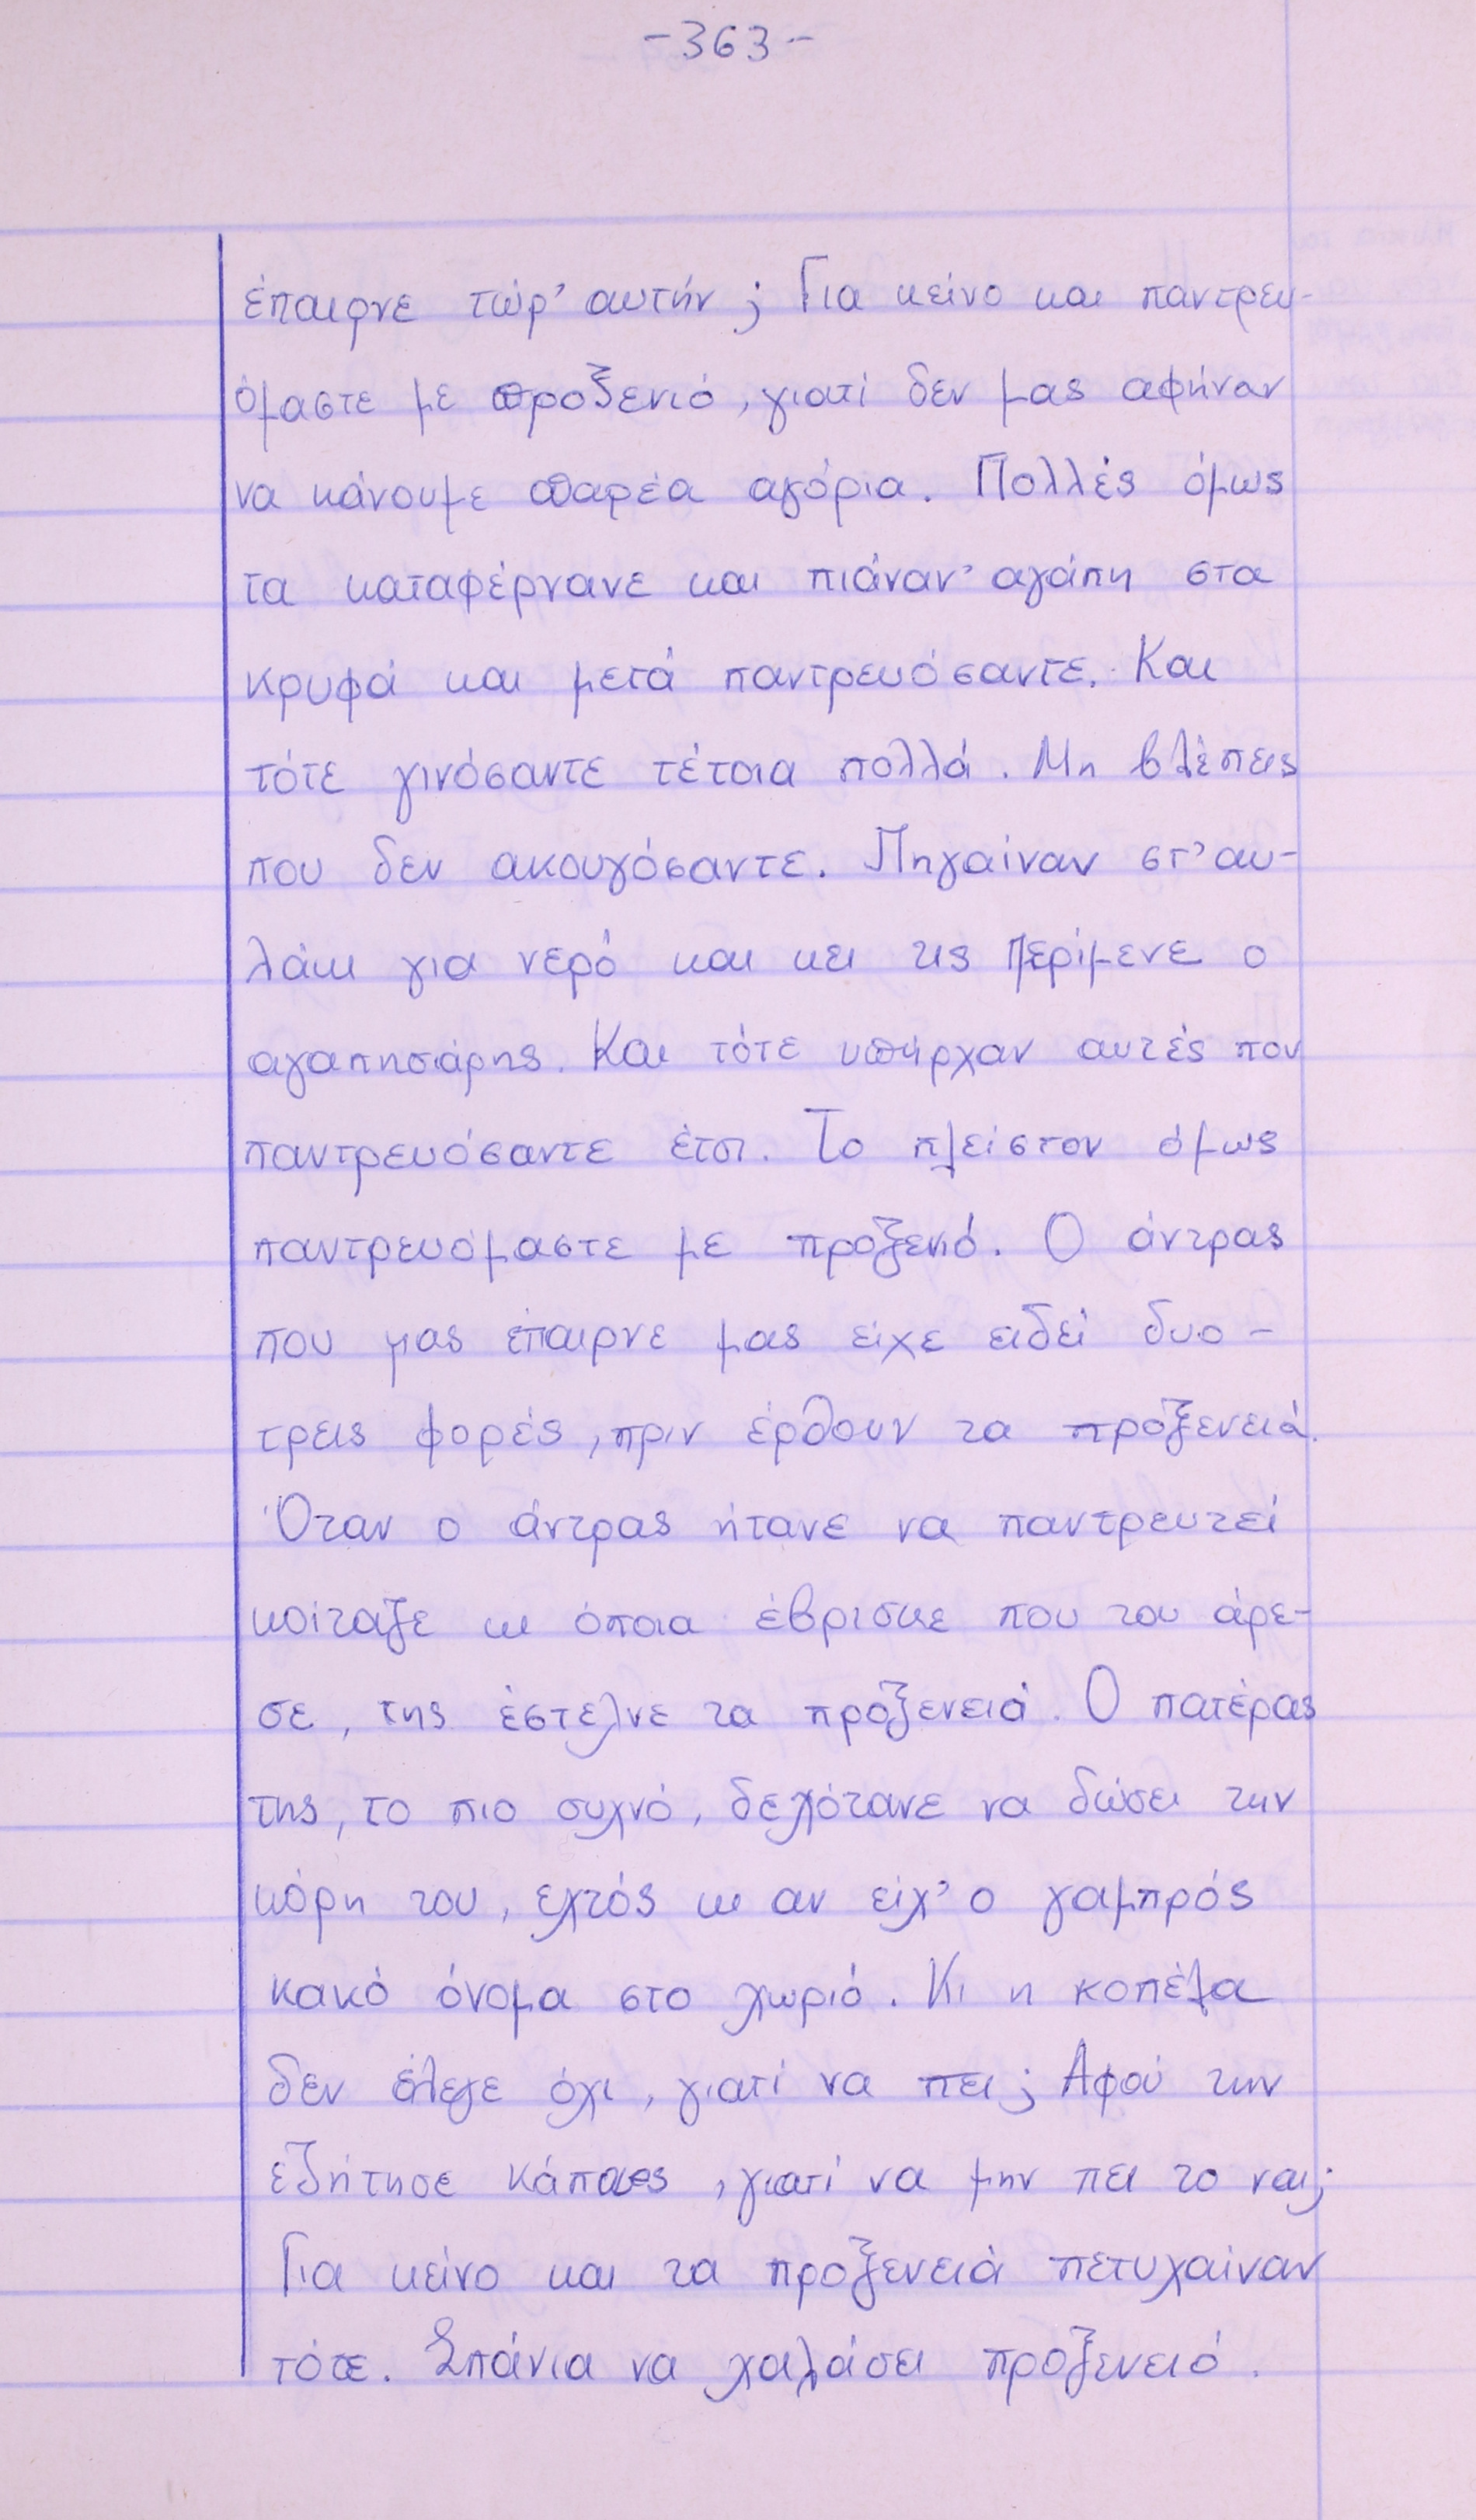 -363-
έπαιρνε τώρ' αυτήν; Για κείνο και παντρευ-
όμαστε με προξενιό, γιατί δεν μας αφήναν
να κάνουμε παρέα αγόρια. Πολλές όμως
τα καταφέρνανε και πιάναν' αγάπη στα
κρυφά και μετά παντρευόσαντε. Και
τότε γινόσαντε τέτοια πολλά. Μη βλέπεις
που δεν ακουγόσαντε. Πηγαίναν στ' αυ-
λάκι για νερό και κει τις περίμενε ο
αγαπησιάρης. Και τότε υπήρχαν αυτές που
παντρευόσαντε έτσι. Το πλείστον όμως
παντρευόμαστε με προξενιό. Ο άντρας
που μας έπαιρνε μας είχε ειδεί δυο-
τρεις φορές, πριν έρθουν τα προξενειά.
Όταν ο άντρας ήτανε να παντρευτεί
κοίταζε κι όποια έβρισκε που του άρε-
σε, της έστελνε τα προξενειά. Ο πατέρας
της, το πιο συχνό, δεχότανε να δώσει την
κόρη του, εχτός κι αν είχ' ο γαμπρός
κακό όνομα στο χωριό. Κι η κοπέλα
δεν έλεγε όχι, γιατί να πει; Αφού την
εζήτησε κάποιος, γιατί να μην πει το ναι;
Για κείνο και τα προξενειά πετυχαίναν
τότε. Σπάνια να χαλάσει προξενειό.